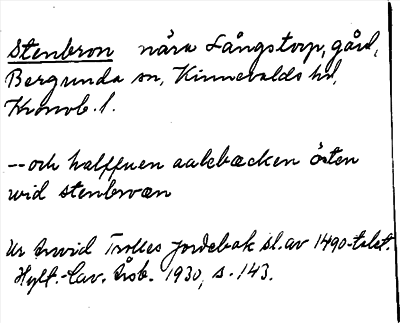 Stenbron nära Långstorp, gård,
Bergunda sn, Kinnevalds hd,
Kronob. l.
-- och halffuen aalebæcken östen
wid stenbroæn
Ur Arvid Trolles Jordebok sl. av 1490-talet.
Hylt.-Cav. Årsb. 1930, s. 143.